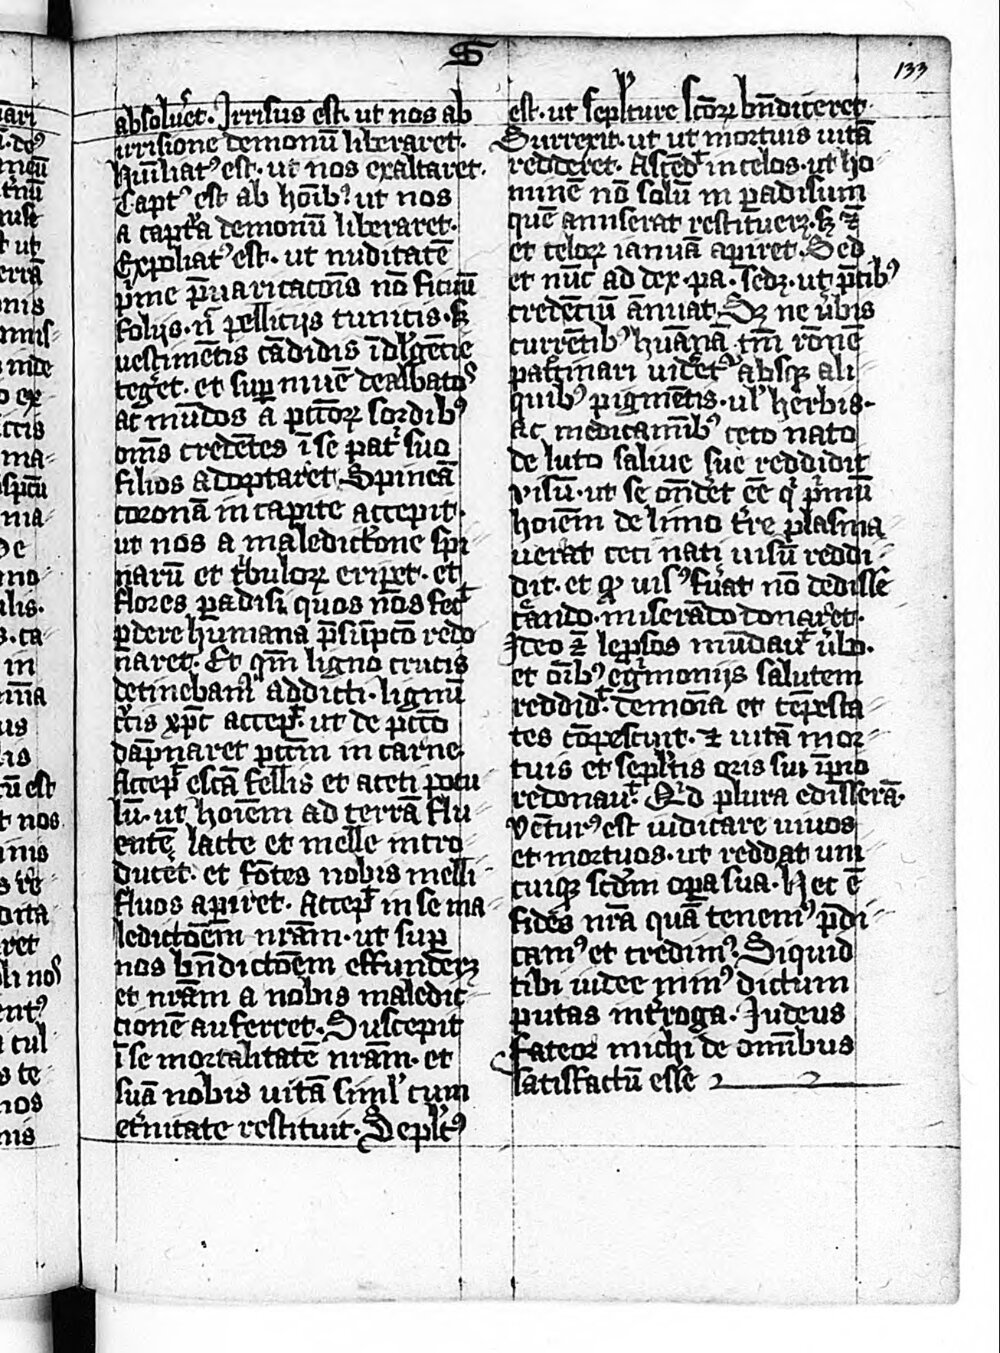 S
133
absolũet. Irrisus est. ut nos ab
irrisione demonũ liberaret.
hũiliatꝰ est. ut nos exaltaret.
Captꝰ est ab hoĩbꝰ ut nos
a captͣa demonũ liberaret.
Expoliatꝰ est. ut nuditatẽ
p̃me p̃uaricacõis nõ ficuũ
folijs. ñ pellicijs tunicis. sꝫ
uestimẽtis cãdidis
teget. et sup niuẽ dealbatos
ac mũdos a pctõꝝ sordibꝰ
oms credẽtes ĩ se patͥ suo
filios adoptaret. Spineã
coronã in capite accepit.
ut nos a maledictͦone spi
narũ et tͥbuloꝝ eriꝑet. et
flores ꝑadisi quos nos fec̃
ꝑdere humana p̃sũpcͦo redo
naret. Et qm̃ ligno crucis
detinebamͬ addicti. lignũ
cͬcis xp̃c accep̃. ut de pctõ
dãpnaret pctm̃ in carne.
Accep̃ escã fellis et aceti pocu
lũ. ut hoiẽm ad terrã flu
entẽ lacte et melle intro
ducẽt. et fõtes nobis melli
fluos aꝑiret. Accep̃ in se ma
ledictõem nr̃am. ut suꝑ
nos bñdictõem effunderꝫ
et nr̃am a nobis maledic
cionẽ auferret. Suscepit
ĩ se mortalitatẽ nr̃am. et
suã nobis uitã simlͥ cum
et̃nitate restituit. Sepltꝰ
est. ut sepltͥure sctõꝝ bñdiceret.
Surrexit. ut ut mortuis uitã
redderet. Ascẽdͭ in celos. ut ho
minẽ nõ solũ in ꝑadisum
quẽ amiserat restituerꝫ. sꝫ ⁊
et celoꝝ ianuã aꝑiret. Sed
et nũc ad dex. pa. sedꝫ. ut p̃cibꝰ
credẽciũ ãnuat. Sꝫ ne ũbis
currẽtibꝰ hũanã tm̃ rõnẽ
pat͡cinari uidetͬ absqꝫ ali
quibꝰ pigmẽtis. ulͥ herbis.
ac medicamĩbꝰ ceco nato
de luto saliue sue reddidit
visũ. ut se oñdet eẽ qͥ pͥmũ
hoiẽm de limo tr̃re plasma
uerat ceci nati uisũ reddi
dit. et qͦ uisꝰ fũat nõ dedisse
cͣando. miserãdo donaret.
Ideo ⁊ leprosos mũdauͭ ũbo.
et oĩbꝰ egͥmonijs salutem
reddidͭ. demoĩa et tẽpesta
tes cõpescuit. ⁊ uitã mor
tuis et sepltͥis oris sui ĩꝑio
redonauͭ. Qͥd plura edisserã.
Vẽturꝰ est iudicare uiuos
et mortuos. ut reddat uni
cuiqꝫ scdm̃ oꝑa sua. Hec ẽ
fides nr̃a quã tenemꝰ p̃di
camꝰ et credimꝰ. Siquid
tibi iudee minꝰ dictum
putas intͤroga. Judeus
fateor michi de om̃ibus
satisfactũ esse